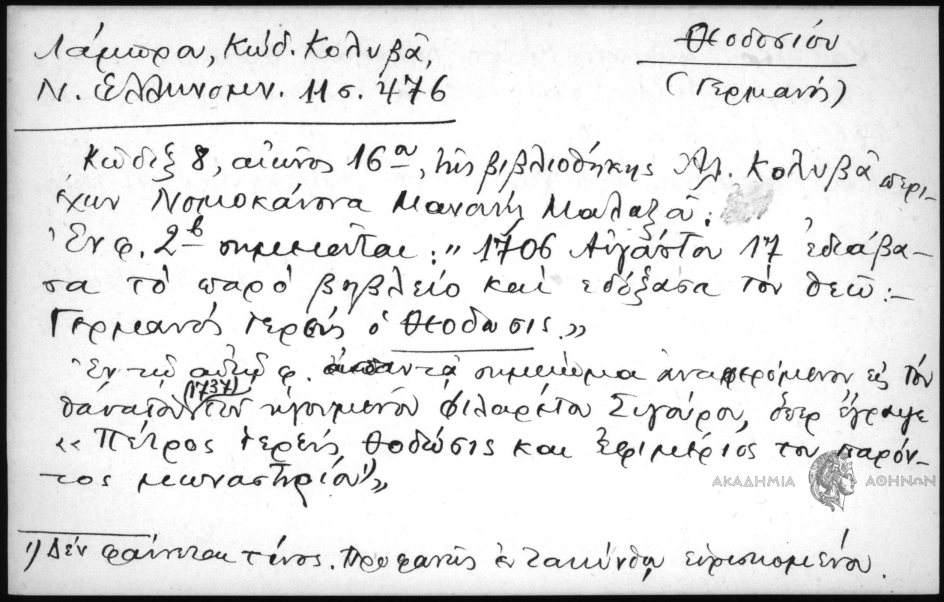 Λάμπρου, Κώδ. Κολυβᾶ,
Ν. Ἑλληνομν. 11 σ. 476
Θοδοσίου
(Γερμανός)
Κῶδιξ 8, αἰῶνος 16ου, τῆς βιβλιοθήκης Ἀλ. Κολυβᾶ περι-
έχων Νομοκάνονα Μανουὴλ Μαλαξοῦ:
Ἐν φ. 2β σημειοῦται: "1706 Αὐγούστου 17 ἐδιάβα-
σα τὸ παρὸ βηβλείο καὶ εδόξασα τὸν θεῶ:-
Γερμανός ἱερεύς ὁ Θοδωσις"
Ἐν τῷ αὐτῷ φ. ἀπαντᾷ σημείωμα ἀναφερόμενον εἰς τὸν
θάνατον (1737) τοῦ ἡγουμένου Φιλαρέτου Σιγούρου, ὅπερ ἔγραψε
«Πέτρος ἱερεύς θοδώσις και ἐφιμέριος του παρόν-
τος μωναστηρίου¹)»
ΑΚΑΔΗΜΙΑ ΑΘΗΝΩΝ
1) Δέν φαίνεται τίνος. Προφανῶς ἐν Ζακύνθῳ εὑρισκομένου.